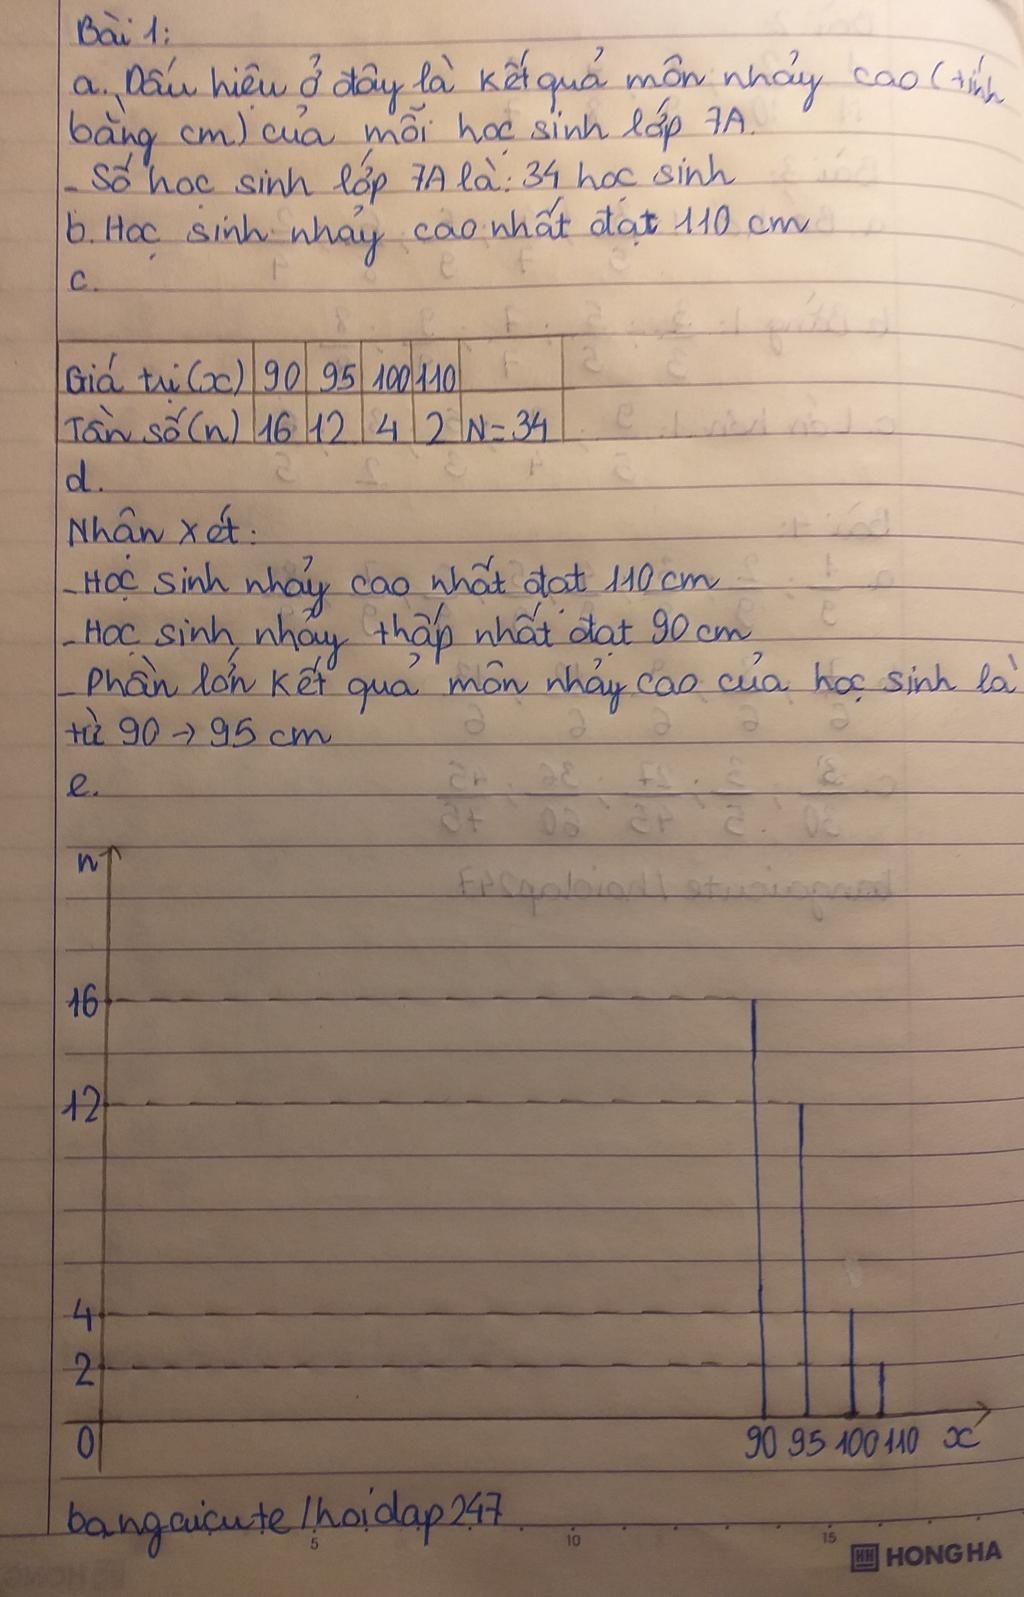 Bài 1:
a. Dấu hiệu ở đây là kết quả môn nhảy cao (tính
bằng cm) của mỗi học sinh lớp 7A.
- Số học sinh lớp 7A là: 34 học sinh
b. Học sinh nhảy cao nhất đạt 110 cm
c.
Giá trị (x) 90 95 100 110
Tần số (n) 16 12 4 2 N = 34
d.
Nhận xét:
- Học sinh nhảy cao nhất đạt 110 cm
- Học sinh nhảy thấp nhất đạt 90 cm
- Phần lớn kết quả môn nhảy cao của học sinh là
từ 90 → 95 cm
e.
n
16
12
4
2
0 90 95 100 110 x
bangaicute / hoidap247
5 10 15
HONG HA